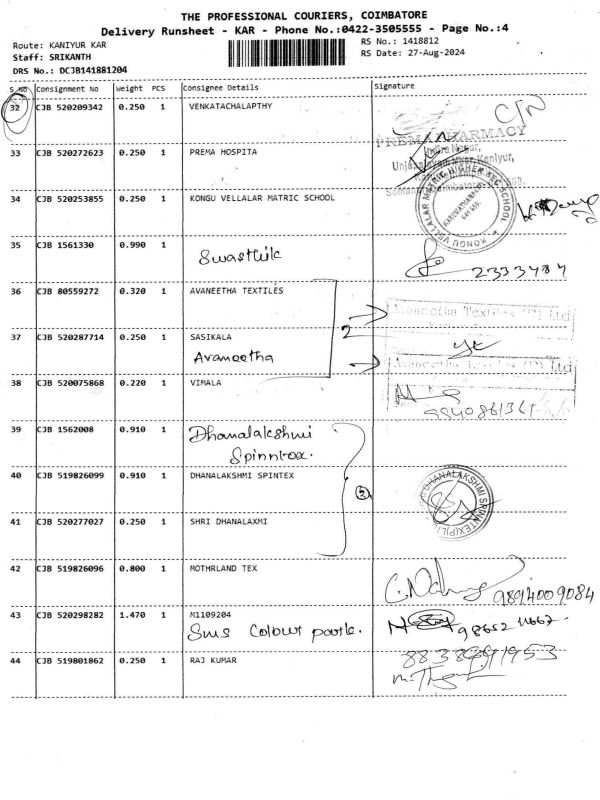 THE PROFESSIONAL COURIERS, COIMBATORE
Delivery Runsheet - KAR - Phone No.:0422-3505555 - Page No.:4
Route: KANIYUR KAR
RS No.: 1418812
Staff: SRIKANTH
RS Date: 27-Aug-2024
DRS No.: DCJB141881204
S.NO Consignment No Weight PCS Consignee Details Signature
32 CJB 520209342 0.250 1 VENKATACHALAPTHY C/N
PREMA PHARMACY
33 CJB 520272623 0.250 1 PREMA HOSPITA
34 CJB 520253855 0.250 1 KONGU VELLALAR MATRIC SCHOOL
KONGU VELLALAR MATRIC HIGHER SEC. SCHOOL
35 CJB 1561330 0.990 1 Swasthik
36 CJB 80559272 0.320 1 AVANEETHA TEXTILES
Avaneetha Textiles (P) Ltd
2
37 CJB 520287714 0.250 1 SASIKALA
Avaneetha
Avaneetha Textiles (P) Ltd
38 CJB 520075868 0.220 1 VIMALA
39 CJB 1562008 0.910 1 Dhanalakshmi
Spinntex.
40 CJB 519826099 0.910 1 DHANALAKSHMI SPINTEX
DHANALAKSHMI SPINTEX(P)
3
41 CJB 520277027 0.250 1 SHRI DHANALAXMI
42 CJB 519826096 0.800 1 MOTHRLAND TEX
9894009084
43 CJB 520298282 1.470 1 M1109204
Sms Colour
44 CJB 519801862 0.250 1 RAJ KUMAR